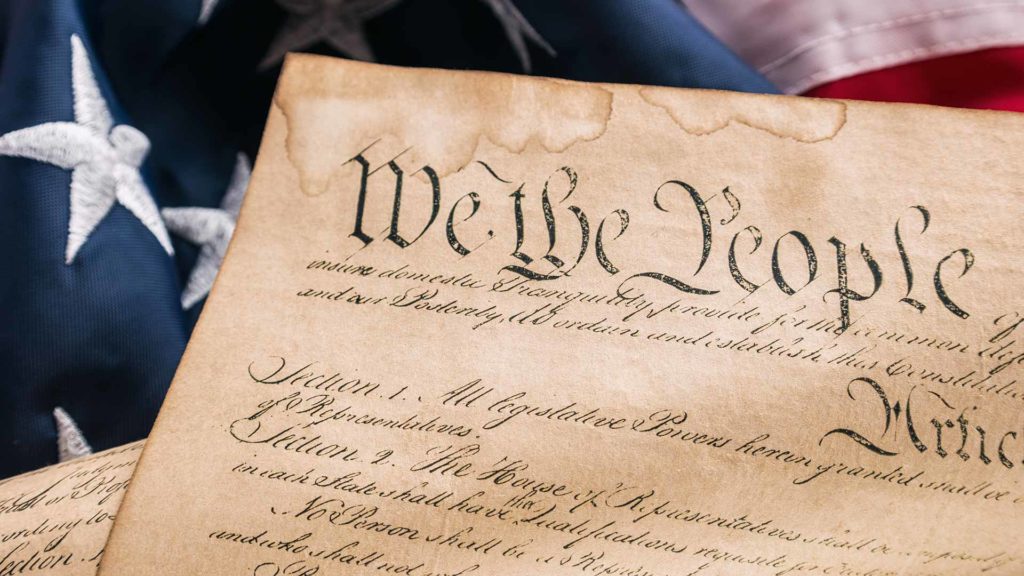 We the People of
insure domestic Tranquility, provide for the common defe
and our Posterity, do ordain and establish this Constitution
Artic
Section. 1. All legislative Powers herein granted shall be
of Representatives.
Section. 2. The House of Representatives shall be composed
in each State shall have the Qualifications requisite for
No Person shall be a Represen
and who shall not
ording to
ection